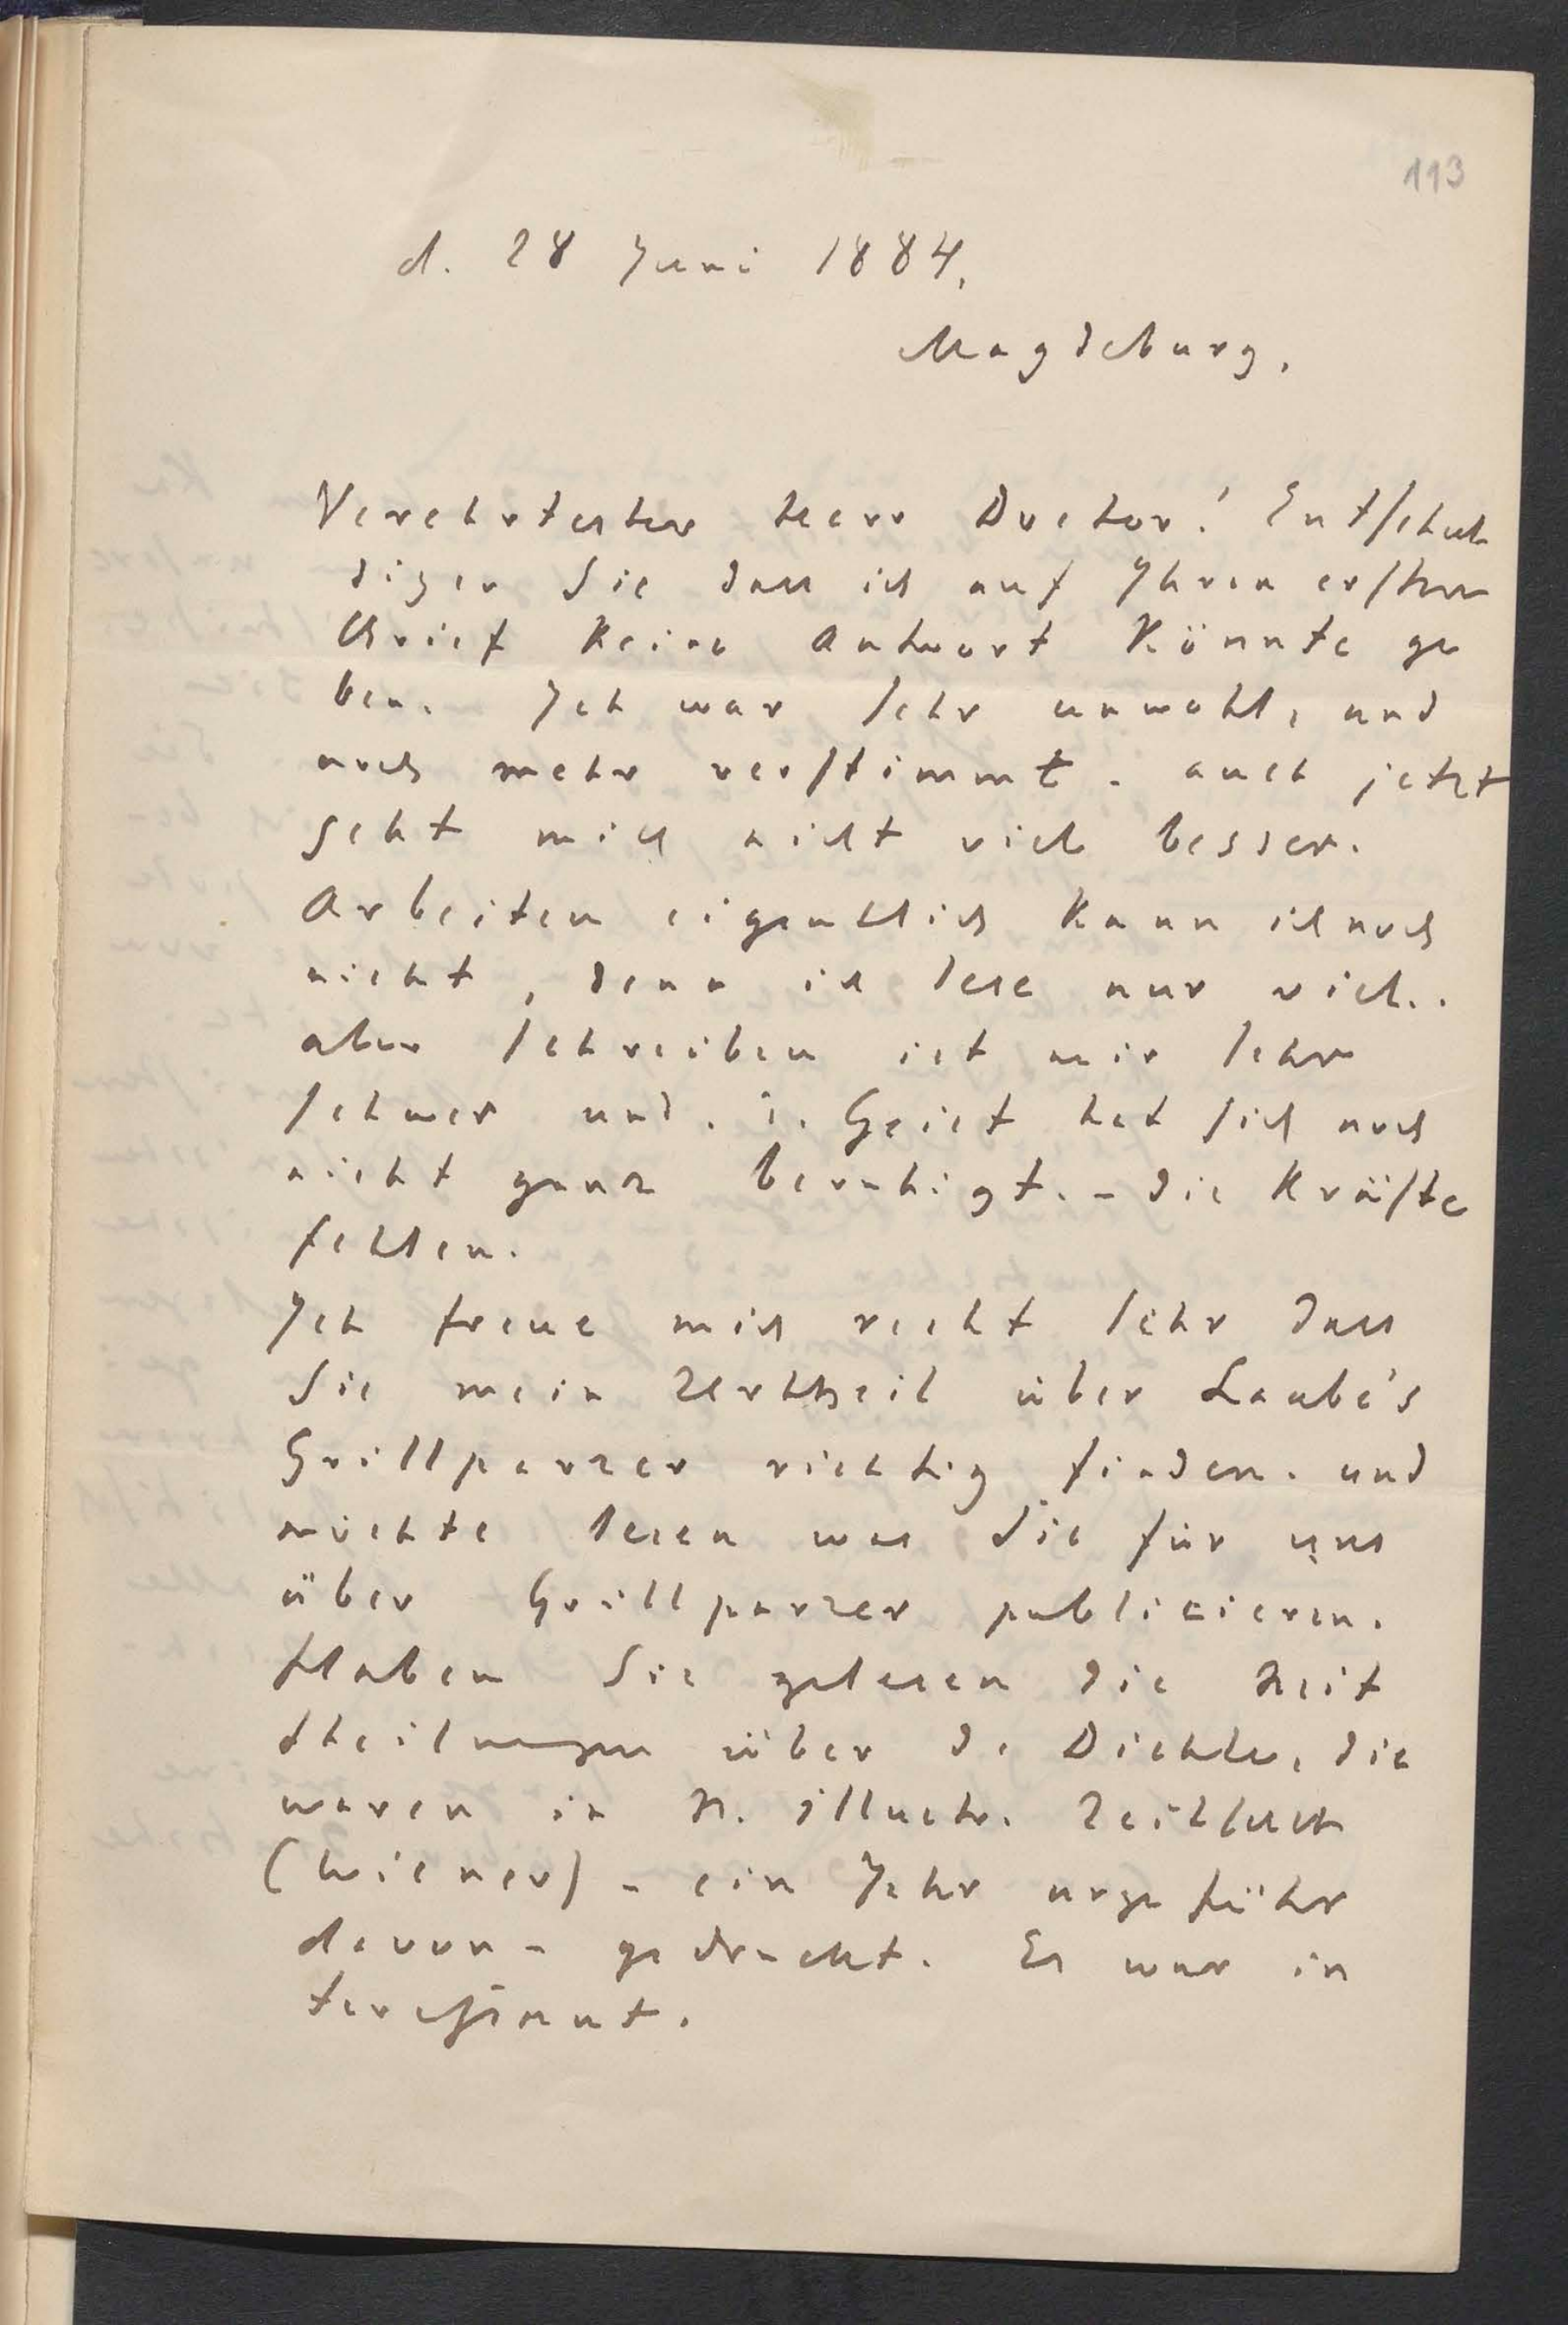 113
d. 28 Juni 1884.
Magdeburg.
Verehrtester Herr Doctor! Entschul
digen Sie dass ich auf Ihren ersten
Brief keine Antwort könnte ge
ben. Ich war sehr unwohl, und
noch mehr verstimmt. auch jetzt
geht mich nicht viel besser.
Arbeiten eigentlich kann ich noch
nicht, denn ich lese nur viel..
aber schreiben ist mir sehr
schwer und. d. Geist hat sich noch
nicht ganz beruhigt. - die Kräfte
fehlen.
Ich freue mich recht sehr dass
Sie mein Urtheil über Laube's
Grillparzer richtig finden. und
möchte lesen was Sie für uns
über Grillparzer publicieren.
Haben Sie gelesen die Mit
theilungen über d. Dichter, die
waren in N. illustr. Zeitschrift
(Wiener) - ein Jahr ungefähr
davon - gedruckt. Es war in
teressant.